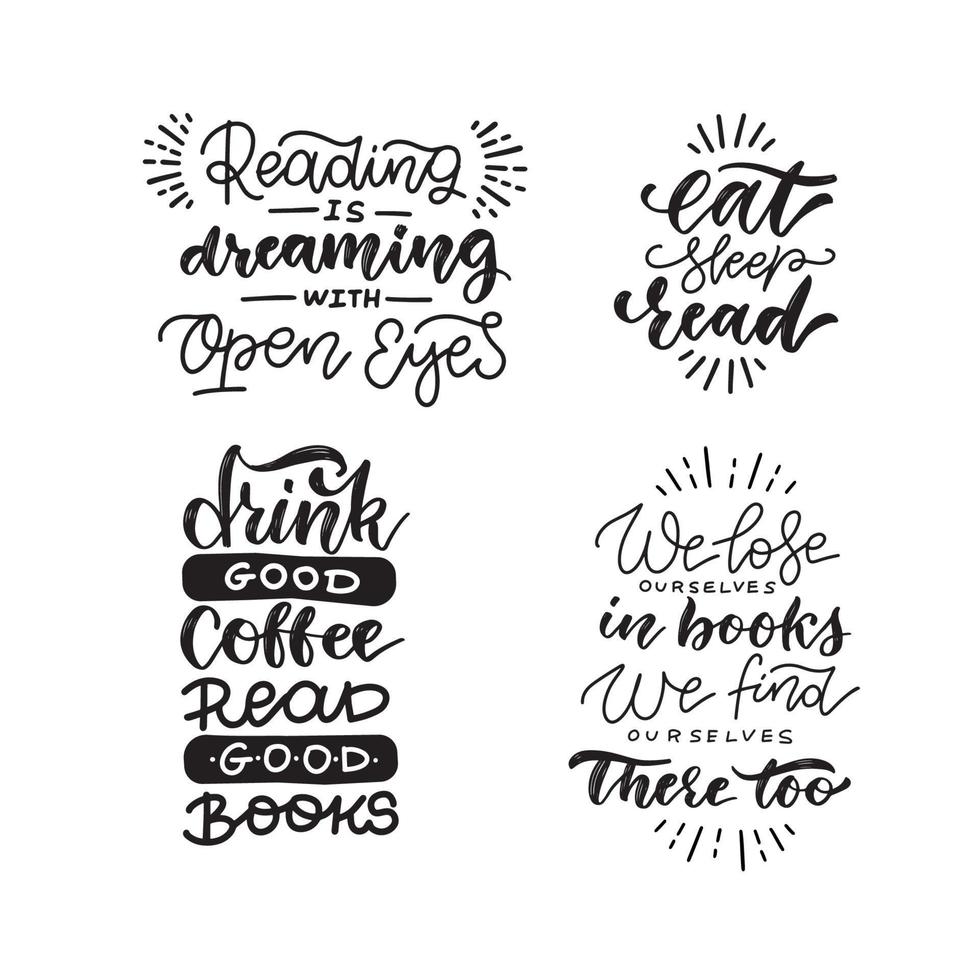 Reading
IS
dreaming
WITH
Open Eyes
eat
sleep
read
drink
GOOD
Coffee
Read
·G·O·O·D·
BOOKS
We lose
OURSELVES
in books
We find
OURSELVES
There too